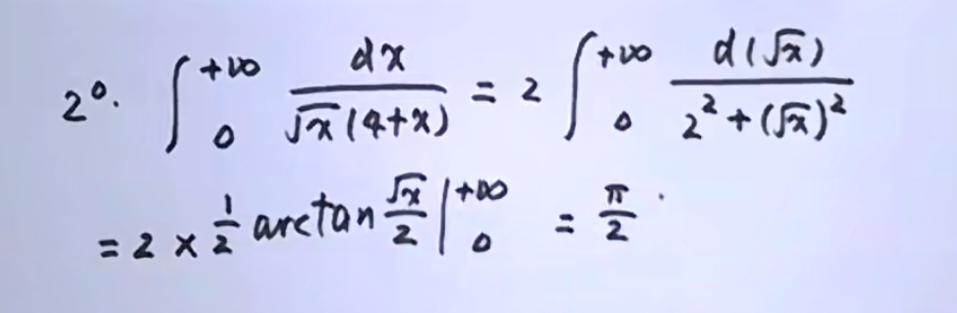 2°. ∫₀^{+∞} dx / (√x (4+x)) = 2 ∫₀^{+∞} d(√x) / (2² + (√x)²)
= 2 × 1/2 arctan √x/2 |₀^{+∞} = π/2.